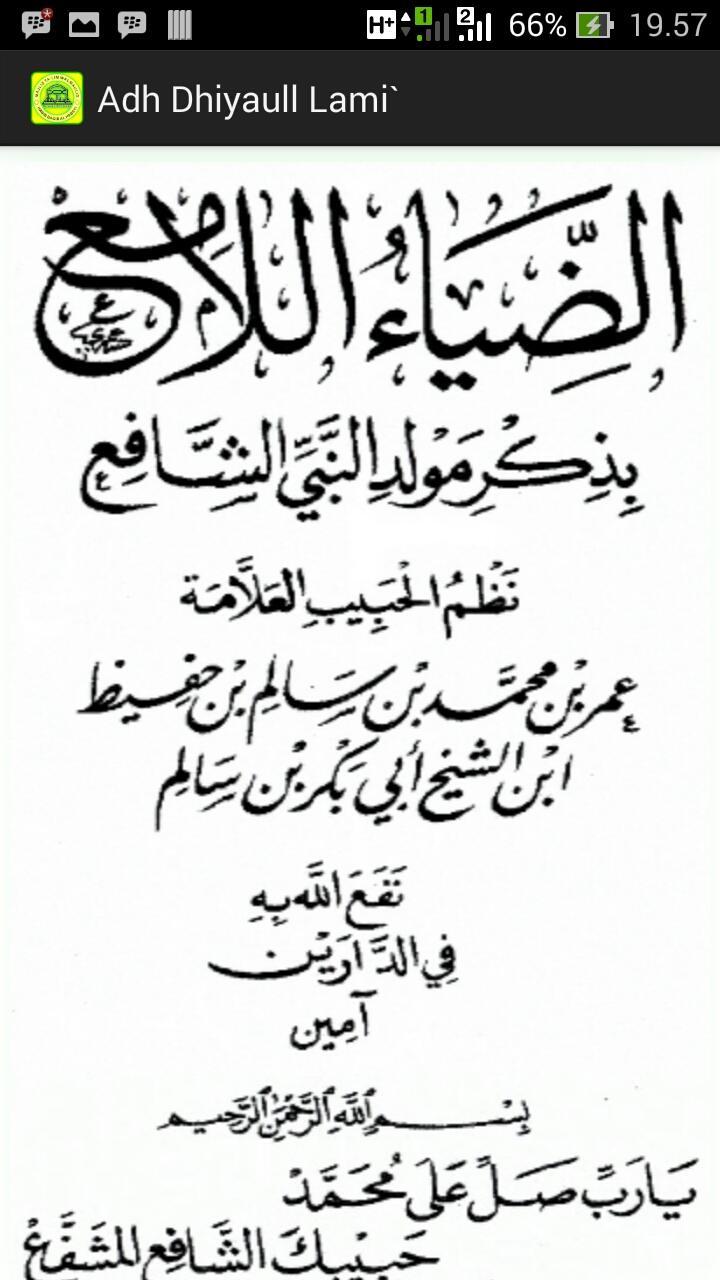 H+ 1 2 66% 19.57
Adh Dhiyaull Lami`
الضِّيَاءُ اللَّامِعُ
بِذِكْرِ مَوْلِدِ النَّبِيِّ الشَّافِعِ
نَظْمُ الْحَبِيبِ الْعَلَّامَة
عمر بن محمَّد بْن سَالِم بْن حفِيظ
ابْن الشيخ أبي بَكْر بْن سَالِم
نَفَعَ اللَّه بِهِ
فِي الدَّارَيْن
آمِين
بِسْمِ اللَّهِ الرَّحْمَنِ الرَّحِيمِ
يَا رَبِّ صَلِّ عَلَى مُحَمَّدْ
حَبِيبِكَ الشَّافِعِ الْمُشَفَّعْ